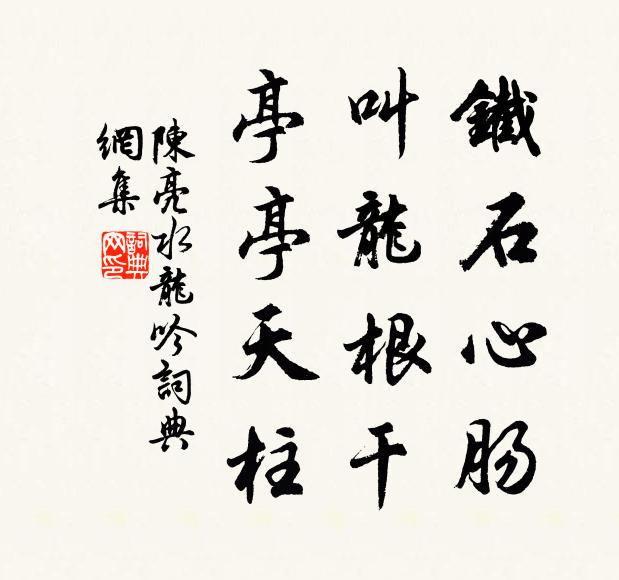 鐵石心肠
叫龍根干
亭亭天柱
陳亮水龍吟詞典
網集
詞典
网印